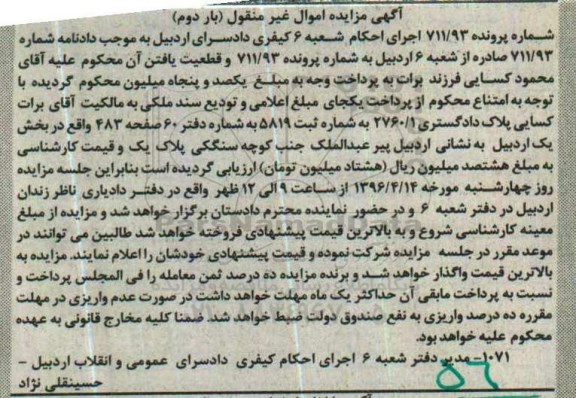 آگهی مزایده اموال غیر منقول (بار دوم)
شماره پرونده ۷۱۱/۹۳ اجرای احکام شعبه ۶ کیفری دادسرای اردبیل به موجب دادنامه شماره
۷۱۱/۹۳ صادره از شعبه ۶ اردبیل به شماره پرونده ۷۱۱/۹۳ و قطعیت یافتن آن محکوم علیه آقای
محمود کسایی فرزند برات به پرداخت وجه به مبلغ یکصد و پنجاه میلیون محکوم گردیده با
توجه به امتناع محکوم از پرداخت یکجای مبلغ اعلامی و تودیع سند ملکی به مالکیت آقای برات
کسایی پلاک دادگستری ۲۷۶۰/۱ به شماره ثبت ۵۸۱۹ به شماره دفتر ۶۰ صفحه ۴۸۳ واقع در بخش
یک اردبیل به نشانی اردبیل پیر عبدالملک جنب کوچه سنگکی پلاک یک و قیمت کارشناسی
به مبلغ هشتصد میلیون ریال (هشتاد میلیون تومان) ارزیابی گردیده است بنابراین جلسه مزایده
روز چهارشنبه مورخه ۱۳۹۶/۴/۱۴ از ساعت ۹ الی ۱۲ ظهر واقع در دفتر دادیاری ناظر زندان
اردبیل در دفتر شعبه ۶ و در حضور نماینده محترم دادستان برگزار خواهد شد و مزایده از مبلغ
معینه کارشناسی شروع و به بالاترین قیمت پیشنهادی فروخته خواهد شد طالبین می توانند در
موعد مقرر در جلسه مزایده شرکت نموده و قیمت پیشنهادی خودشان را اعلام نمایند. مزایده به
بالاترین قیمت واگذار خواهد شد و برنده مزایده ده درصد ثمن معامله را فی المجلس پرداخت و
نسبت به پرداخت مابقی آن حداکثر یک ماه مهلت خواهد داشت در صورت عدم واریزی در مهلت
مقرره ده درصد واریزی به نفع صندوق دولت ضبط خواهد شد. ضمنا کلیه مخارج قانونی به عهده
محکوم علیه خواهد بود.
۱۰۷۱- مدیر دفتر شعبه ۶ اجرای احکام کیفری دادسرای عمومی و انقلاب اردبیل -
حسینقلی نژاد
۵۶